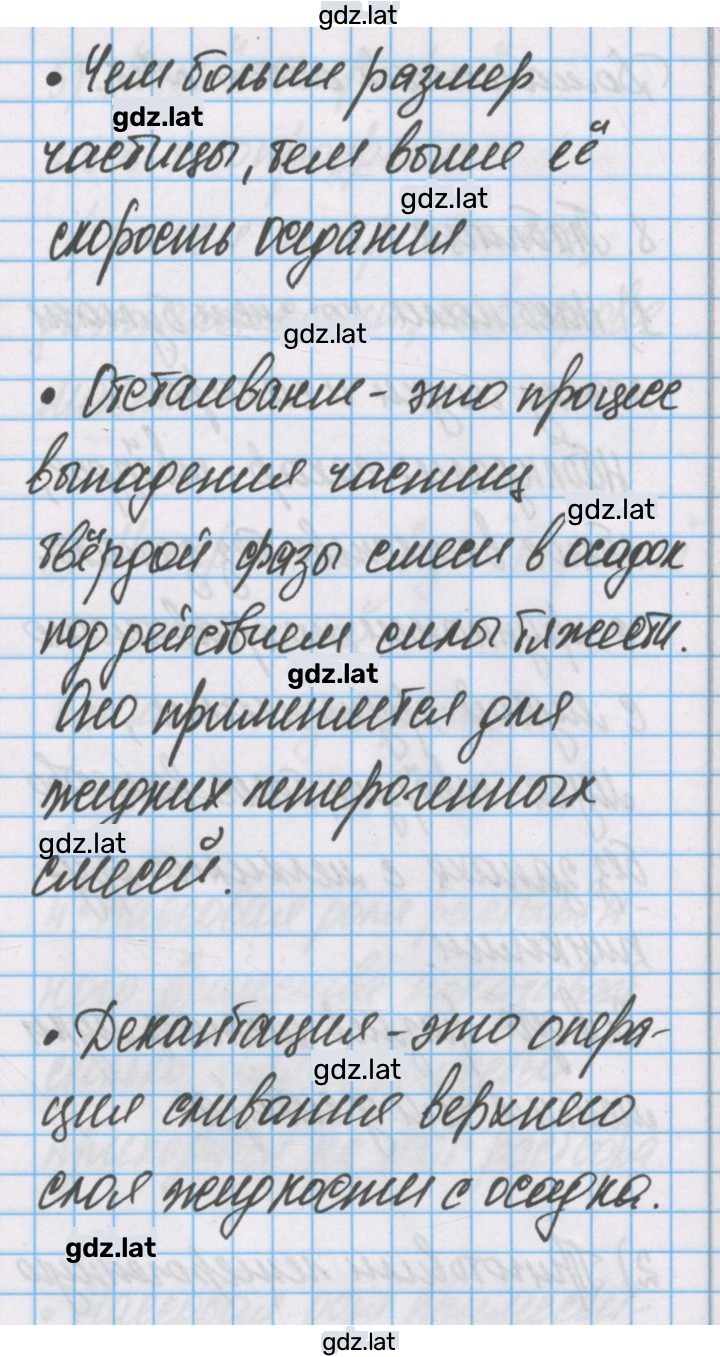 gdz.lat
• Чем больше размер
gdz.lat
частицы, тем выше её
gdz.lat
скорость оседания
gdz.lat
• Отстаивание - это процесс
выпадения частиц
gdz.lat
твёрдой фазы смеси в осадок
под действием силы тяжести.
gdz.lat
Оно применяется для
жидких гетерогенных
gdz.lat
смесей.
• Декантация - это опера-
gdz.lat
ция сливания верхнего
слоя жидкости с осадка.
gdz.lat
gdz.lat